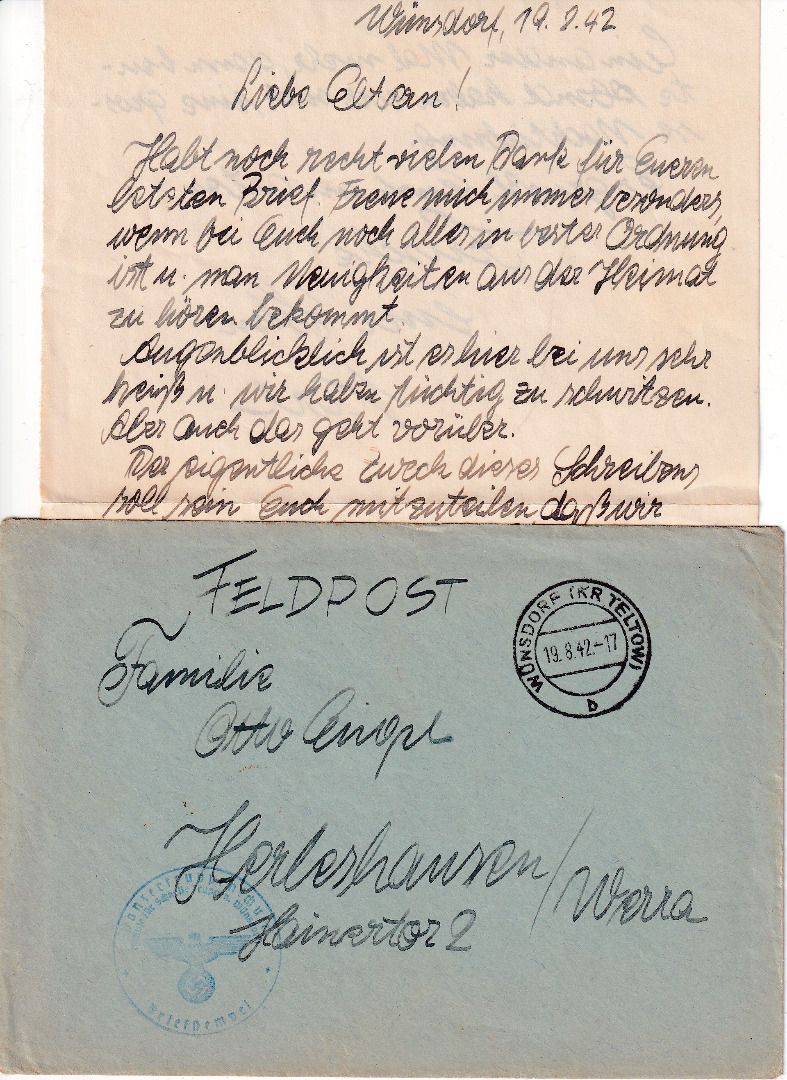 Wünsdorf, 19.8.42
Liebe Eltern!
Habt noch recht vielen Dank für Eueren
letzten Brief. Freue mich immer besonders,
wenn bei Euch noch alles in bester Ordnung
ist u. man Neuigkeiten aus der Heimat
zu hören bekommt.
Augenblicklich ist es hier bei uns sehr
heiß u. wir haben tüchtig zu schwitzen.
Aber auch das geht vorüber.
Der eigentliche Zweck dieses Schreibens
soll sein Euch mitzuteilen daß wir
FELDPOST
WÜNSDORF (KR TELTOW)
19.8.42.-17
b
Familie
Otto
Herleshausen/Werra
Hainertor 2
Briefstempel